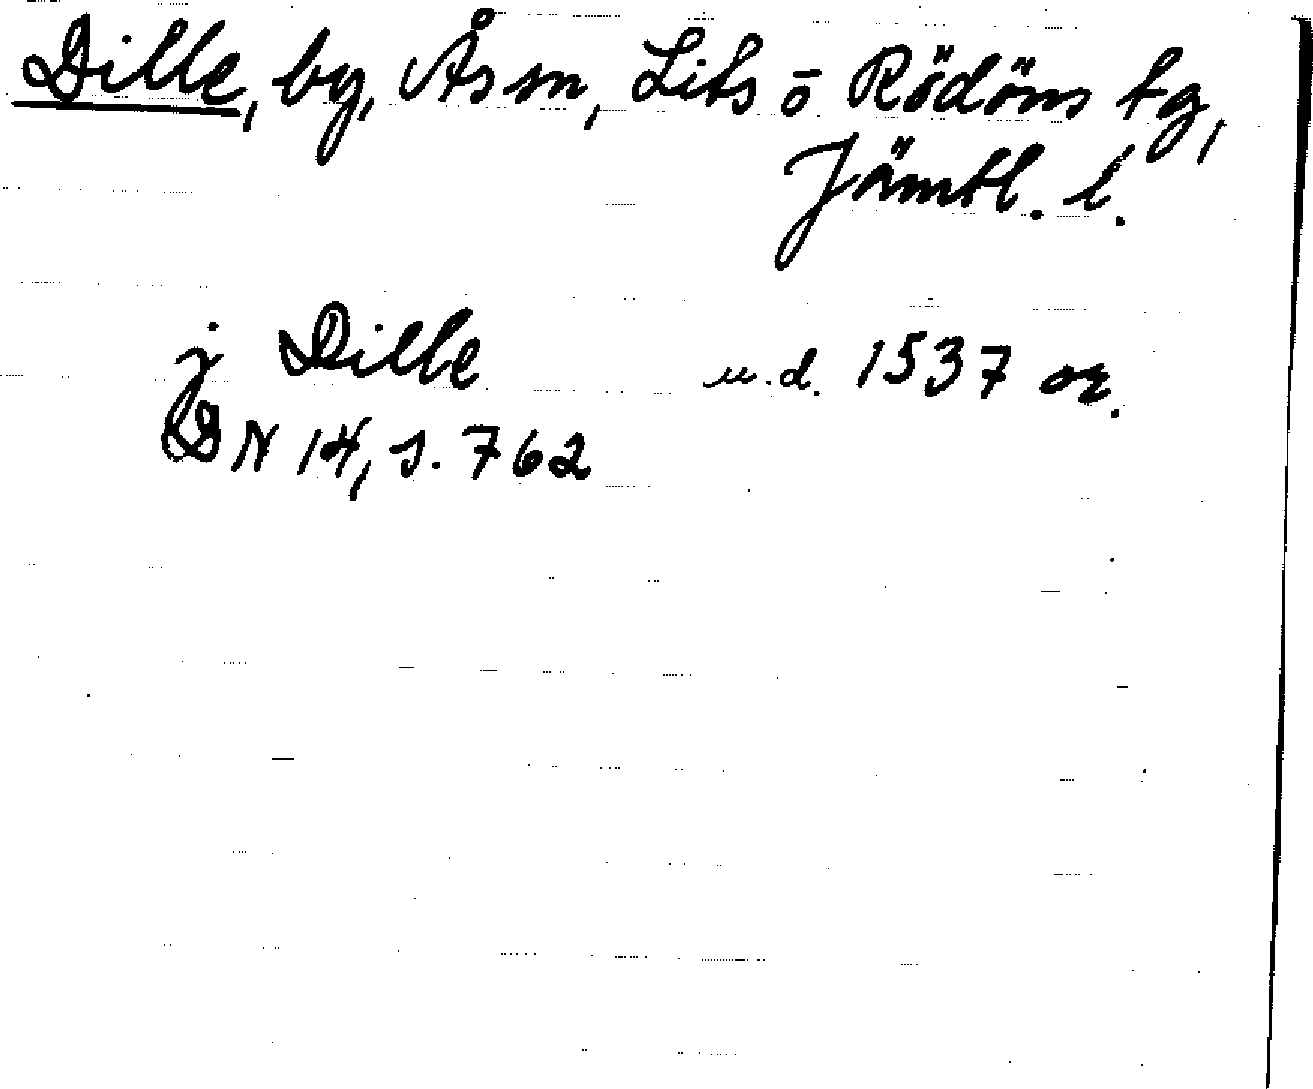 Dille, by, Ås sn, Lits o Rödöns tg,
Jämtl. l.
j Dille u.d. 1537 or.
DN 14, s. 762